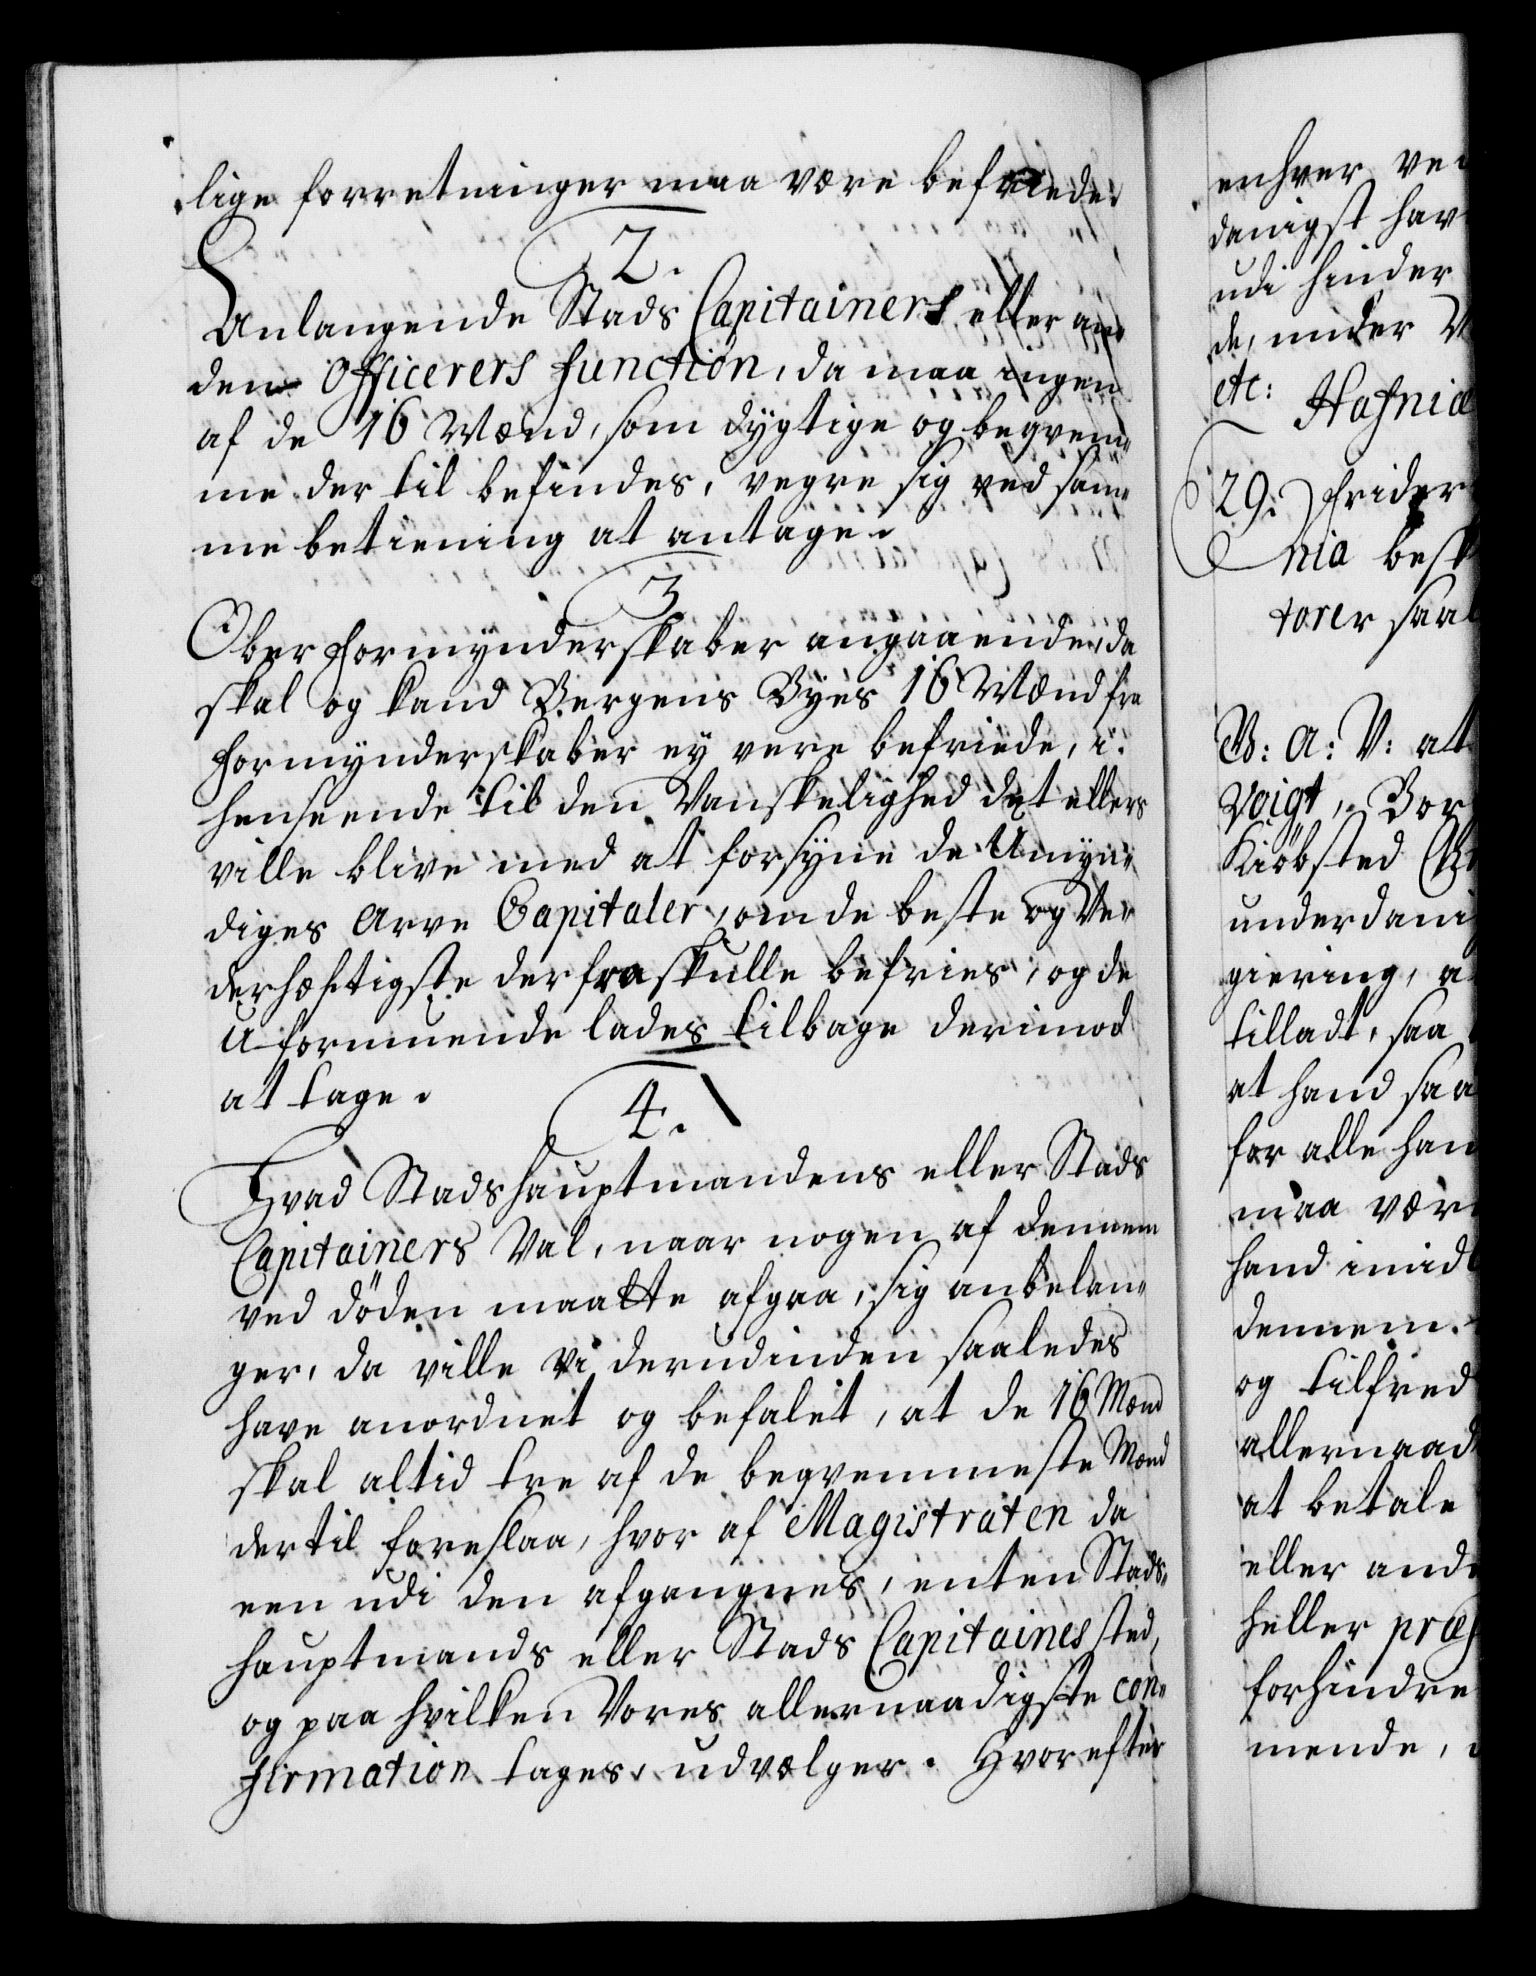 lige forretninger maa være befriede.
2.
Anlangende Stads Capitainers eller an-
den Officerers function, da maa ingen
af de 16 Mænd, som dygtige og beqvem-
me der til befindes, vegre sig ved sam-
me betiening at antage.
3
Ober Formynderskaber angaaende, da
skal og kand Bergens Byes 16 Mænd fra
Formynderskaber ey vere befriede, i
henseende til den Vanskelighed det ellers
ville blive med at forsyne de Umyn-
diges Arve Capitaler, om de beste og Ve-
derhæftigste derfra skulle befries, og de
Uformuende lades tilbage derimod
at tage.
4.
Hvad Stadshauptmandens eller Stads
Capitainers Val, naar nogen af dennem
ved döden maatte afgaa, sig anbelan-
ger, da ville Vi derudinden saaledes
have anordnet og befalet, at de 16 Mænd
skal altid tre af de beqvemmeste Mænd
dertil foreslaa, hvor af Magistraten da
een udi den afgangnes, enten Stads-
hauptmands eller Stads Capitaines sted,
og paa hvilken Vores allernaadigste con-
firmation tages, udvælger. Hvorefter
enhver ved
danigst hav
udi hinder
de, under V
etc: Hafniæ
29. Frider
nia besk
torer saal
V: A: V: at
Voigt, Bor
Kiöbsted
underdani
giering, a
tilladt, saa
at hand saa
for alle han
maa vær
hand imid
dennem
og tilfred
allernaad
at betale
eller ande
heller præ
forhindre
mende,